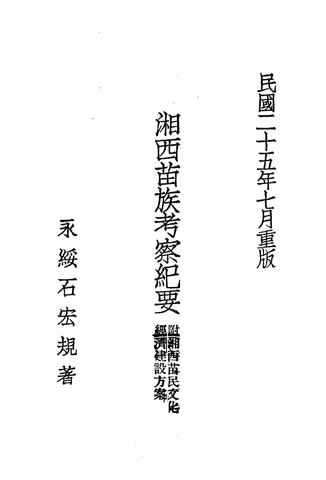 民國二十五年七月重版
湘西苗族考察紀要
附湘西苗民文化
經濟建設方案
永綏石宏規著